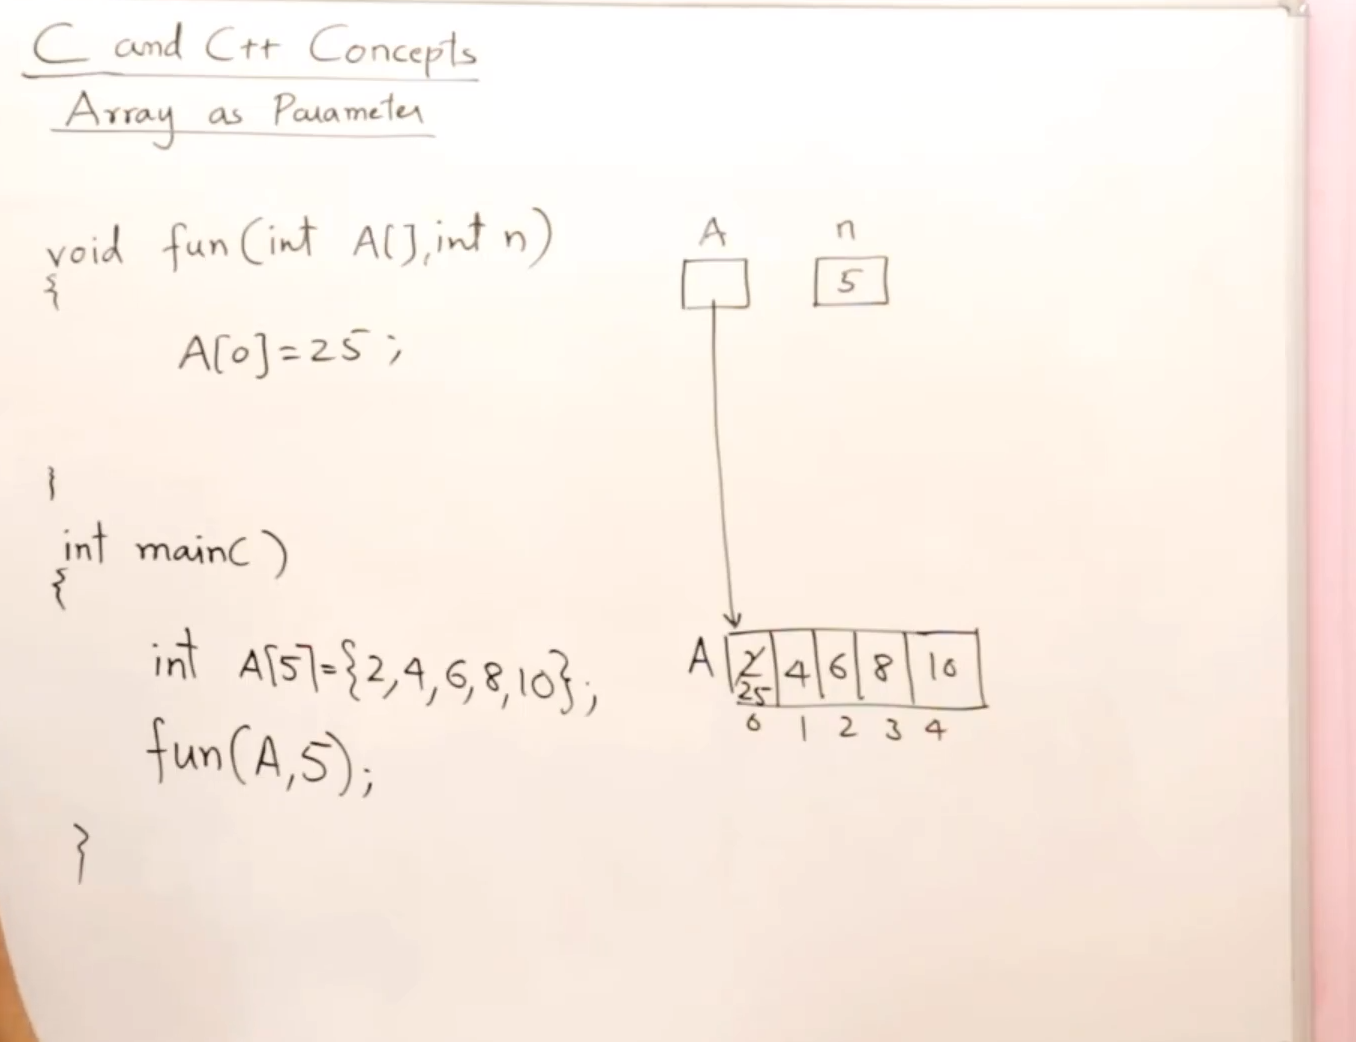 C and C++ Concepts
Array as Parameter
void fun(int A[],int n)
{
A[0]=25;
}
int main()
{
int A[5]={2,4,6,8,10};
fun(A,5);
}
A n
5
A 2 4 6 8 10
25
0 1 2 3 4